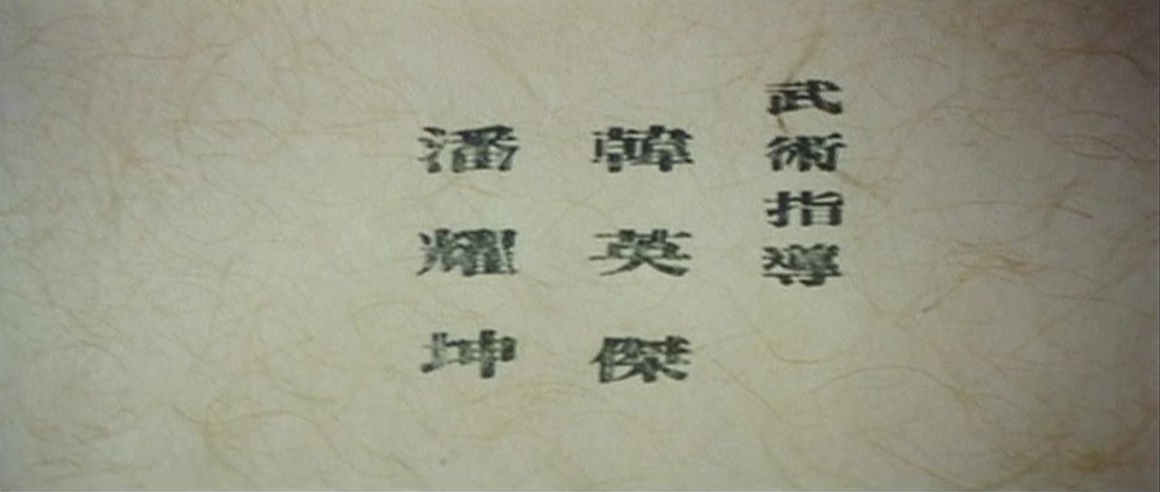 武術指導
韓英傑
潘耀坤